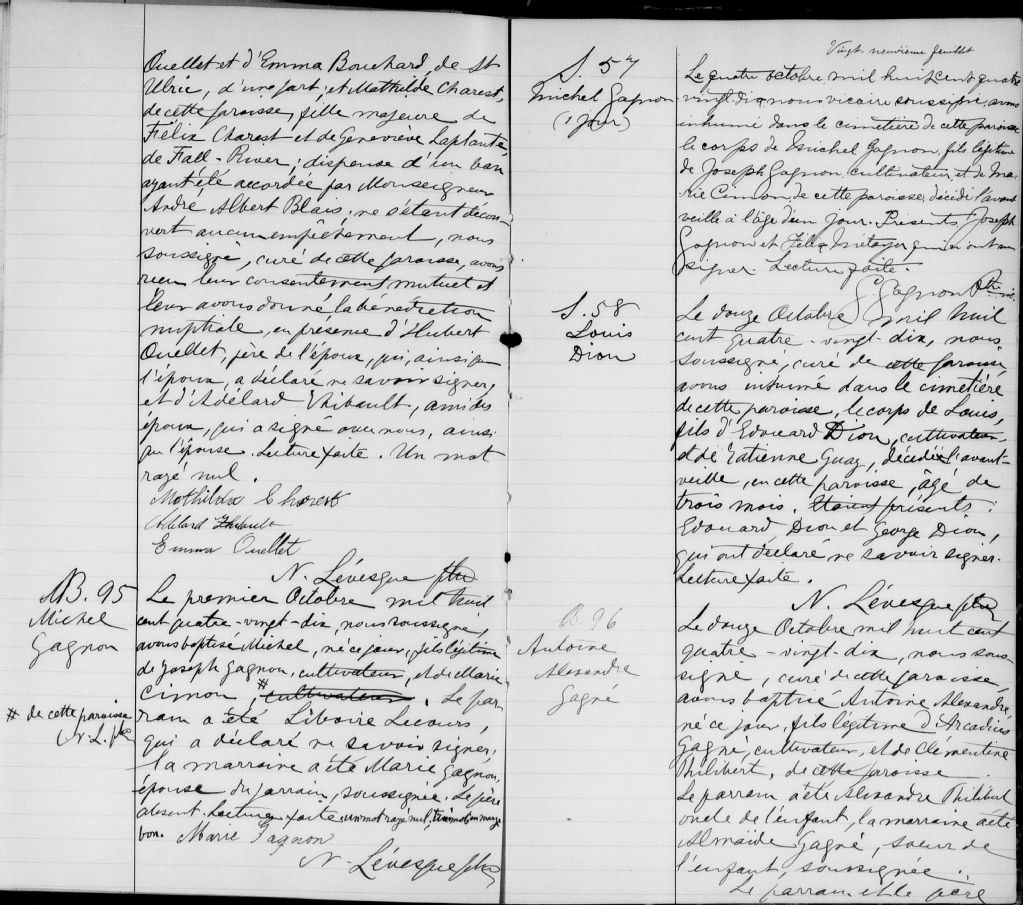 Ouellet et d'Emma Bouchard, de St
Ulric, d'une part, et Mathilde Charest,
de cette paroisse, fille majeure de
Félix Charest et de Geneviève Laplante,
de Fall-River; dispense d'un ban
ayant été accordée par Monseigneur
André Albert Blais; ne s'étant décou-
vert aucun empêchement, nous
soussigné, curé de cette paroisse, avons
reçu leur consentement mutuel et
leur avons donné la bénédiction
nuptiale, en présence d'Hubert
Ouellet, père de l'époux, qui, ainsi que
l'époux, a déclaré ne savoir signer,
et d'Adélard Thibault, ami des
époux, qui a signé avec nous, ainsi
que l'épouse. Lecture faite. Un mot
rayé nul.
Mathilda Charest
Adelard Thibault
Emma Ouellet
N. Lévesque ptre
B. 95
Michel
Gagnon
Le premier Octobre mil huit
cent quatre-vingt-dix, nous soussigné,
avons baptisé Michel, né ce jour, fils légitime
de Joseph Gagnon, cultivateur, et de Marie
Cimon, # cultivateur. Le par-
rain a été Liboire Lecours,
qui a déclaré ne savoir signer;
la marraine a été Marie Gagnon,
épouse du parrain, soussignée. Le père
absent. Lecture faite. un mot rayé nul, un mot en marge
bon. Marie Gagnon
N. Lévesque ptre
# de cette paroisse
N. L. ptre
Vingt neuvième feuillet
S. 57
Michel Gagnon
(1 jour)
Le quatre octobre mil huit cent quatre
vingt dix nous vicaire soussigné, avons
inhumé dans le cimetière de cette paroisse
le corps de Michel Gagnon, fils légitime
de Joseph Gagnon, cultivateur, et de Ma-
rie Cimon, de cette paroisse, décédé l'avant
veille à l'âge d'un jour. Présents, Joseph
Gagnon et Félix Métayer qui n'ont su
signer. Lecture faite.
Gagnon Ptre vic.
S. 58
Louis
Dion
Le douze Octobre mil huit
cent quatre-vingt-dix, nous
soussigné, curé de cette paroisse,
avons inhumé dans le cimetière
de cette paroisse, le corps de Louis,
fils d'Edouard Dion, cultivateur,
et de Tatienne Guay, décédé l'avant-
veille, en cette paroisse, âgé de
trois mois. Etaient présents:
Edouard Dion et George Dion,
qui ont déclaré ne savoir signer.
Lecture faite.
N. Lévesque ptre
B. 96
Antoine
Alexandre
Gagné
Le douze Octobre mil huit cent
quatre-vingt-dix, nous sous-
signé, curé de cette paroisse,
avons baptisé Antoine Alexandre,
né ce jour, fils légitime d'Arcadius
Gagné, cultivateur, et de Clémentine
Philibert, de cette paroisse.
Le parrain a été Alexandre Philibert
oncle de l'enfant, la marraine a été
Almaïde Gagné, soeur de
l'enfant, soussignée.
Le parrain et le père